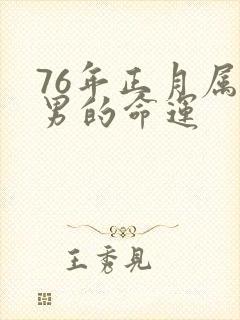 76年正月属
男的命运
王秀见